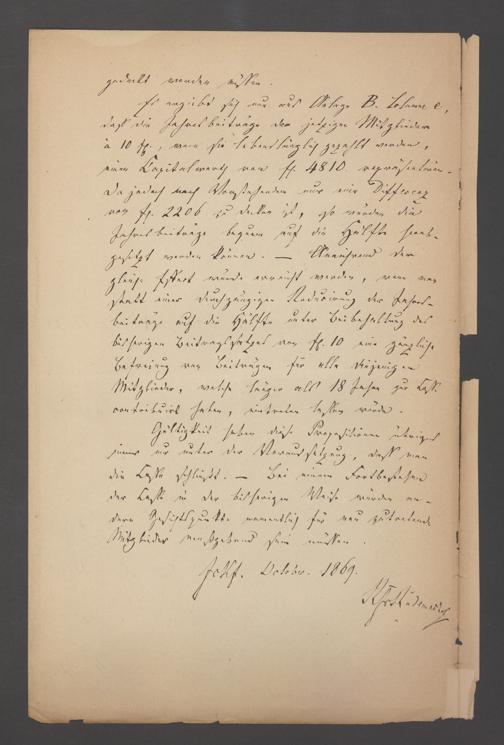 gedeckt werden müssen.
Es ergibt sich nun aus Anlage B. Colonne e,
daß die Jahresbeiträge der jetzigen Mitglieder
à 10 fl., wenn sie lebenslänglich gezahlt werden,
einen Capitalwerth von fl. 4810 repräsentiren.
Da jedoch nach Vorstehendem nur eine Differenz
von fl. 2206 zu decken ist, so würden die
Jahresbeiträge bequem auf die Hälfte herab-
gesetzt werden können. — Annähernd der
gleiche Effect würde erreicht werden, wenn man
statt einer durchgängigen Reducirung der Jahres-
beiträge auf die Hälfte unter Beibehaltung des
bisherigen Beitragssatzes von fl. 10 eine gänzliche
Befreiung von Beiträgen für alle diejenigen
Mitglieder, welche länger als 18 Jahre zur Casse
contribuirt haben, eintreten lassen würde.
Gültigkeit haben diese Propositionen übrigens
immer nur unter der Voraussetzung, daß man
die Casse schließt. — Bei einem Fortbestehen
der Casse in der bisherigen Weise würden an-
dere Gesichtspunkte namentlich für neu zutretende
Mitglieder maßgebend sein müssen.
Frkf. October 1869.